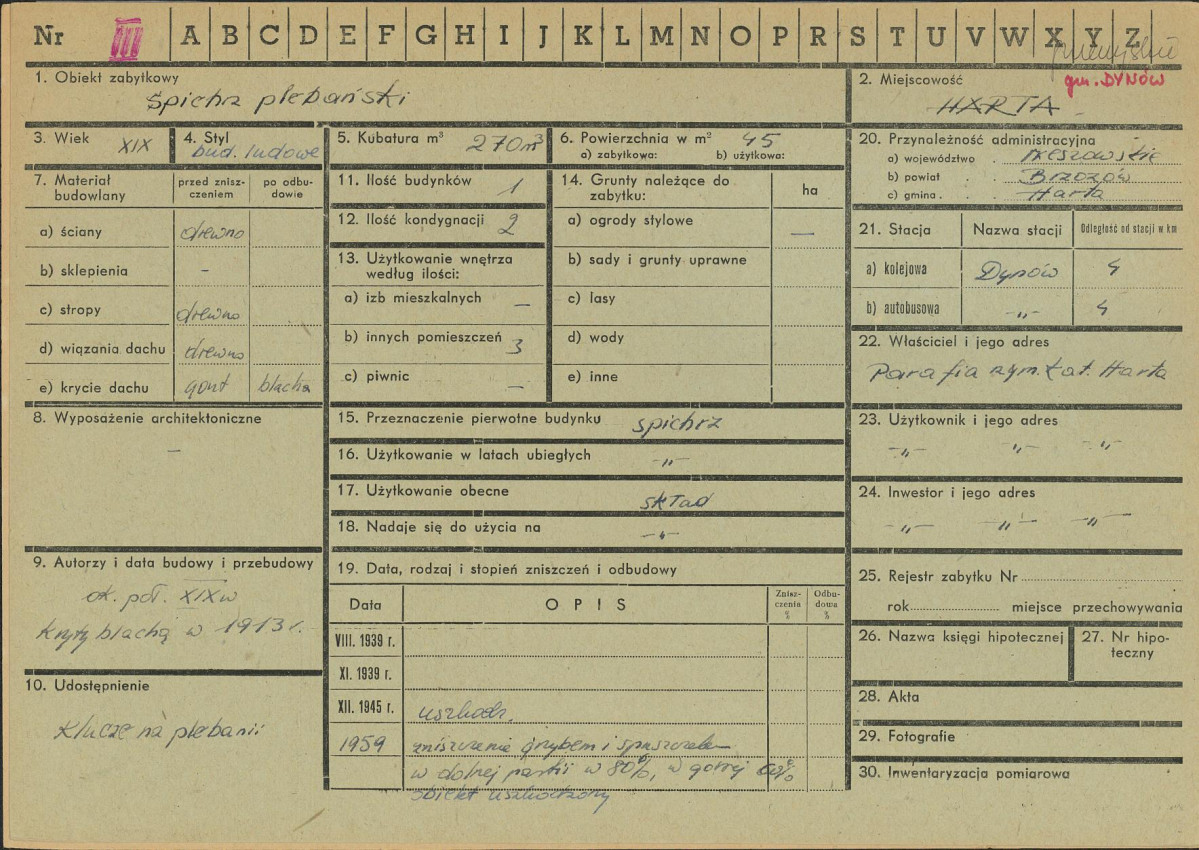 Nr III A B C D E F G H I J K L M N O P R S T U V W X Y Z
przemyskie
1. Obiekt zabytkowy
Spichrz plebański
2. Miejscowość
gm. DYNÓW
HARTA
3. Wiek XIX
4. Styl
bud. ludowe
5. Kubatura m³ 270 m³
6. Powierzchnia w m² 45
a) zabytkowa: b) użytkowa:
20. Przynależność administracyjna
a) województwo Rzeszowskie
b) powiat Brzozów
c) gmina Harta
7. Materiał budowlany
przed zniszczeniem
po odbudowie
a) ściany drewno
b) sklepienia –
c) stropy drewno
d) wiązania dachu drewno
e) krycie dachu gont blacha
11. Ilość budynków 1
12. Ilość kondygnacji 2
13. Użytkowanie wnętrza
według ilości:
a) izb mieszkalnych –
b) innych pomieszczeń 3
c) piwnic –
14. Grunty należące do
zabytku:
ha
a) ogrody stylowe –
b) sady i grunty uprawne
c) lasy
d) wody
e) inne
21. Stacja Nazwa stacji Odległość od stacji w km
a) kolejowa Dynów 4
b) autobusowa -„- 4
22. Właściciel i jego adres
Parafia rzym. kat. Harta
8. Wyposażenie architektoniczne
–
15. Przeznaczenie pierwotne budynku spichrz
16. Użytkowanie w latach ubiegłych -„-
17. Użytkowanie obecne skład
18. Nadaje się do użycia na -„-
23. Użytkownik i jego adres
-„- -„- -„-
24. Inwestor i jego adres
-„- -„- -„-
9. Autorzy i data budowy i przebudowy
ok. poł. XIX w
kryty blachą w 1913 r.
10. Udostępnienie
Klucze na plebanii
19. Data, rodzaj i stopień zniszczeń i odbudowy
Data OPIS Zniszczenia % Odbudowa %
VIII. 1939 r.
XI. 1939 r.
XII. 1945 r. uszkodz.
1959 zniszczenie grzybem i spuszczelem
w dolnej partii w 80%, w górnej
obiekt uszkodzony
25. Rejestr zabytku Nr
rok miejsce przechowywania
26. Nazwa księgi hipotecznej
27. Nr hipoteczny
28. Akta
29. Fotografie
30. Inwentaryzacja pomiarowa